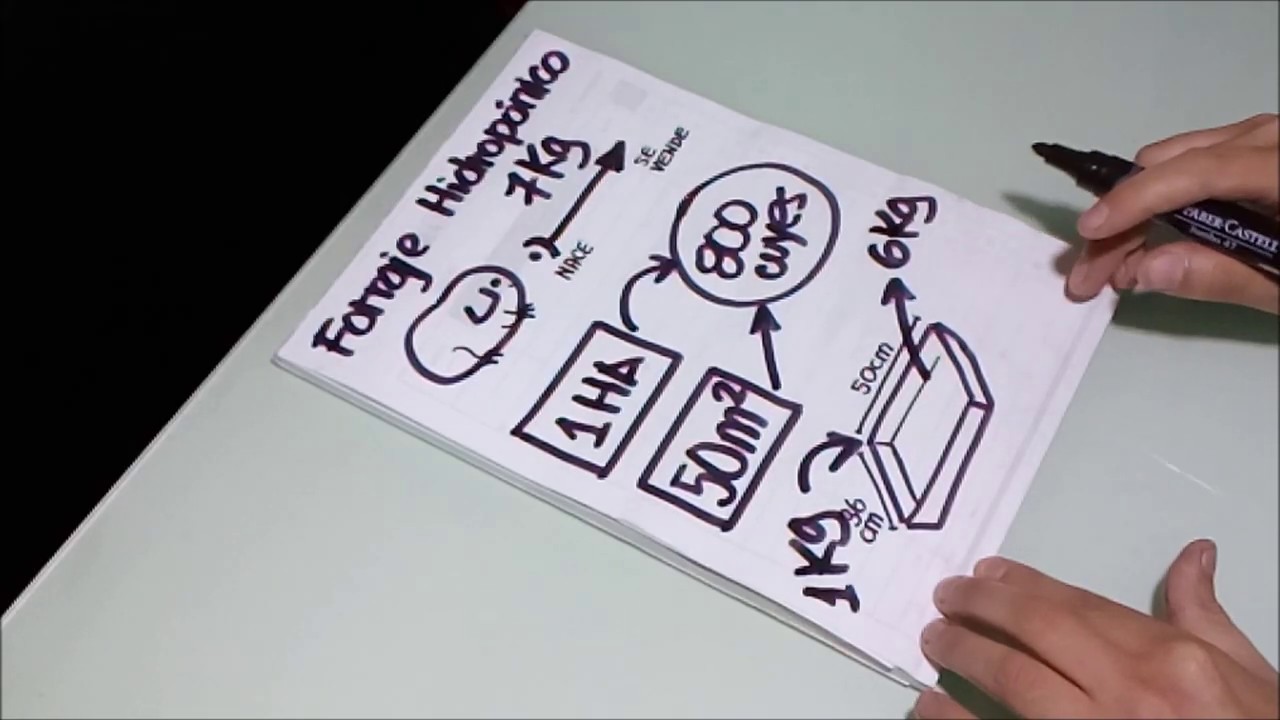 Forraje Hidropónico
7Kg
NACE
SE
VENDE
1 HA
800
cuyes
50m²
1 Kg
50cm
36
cm
6Kg
FABER-CASTELL